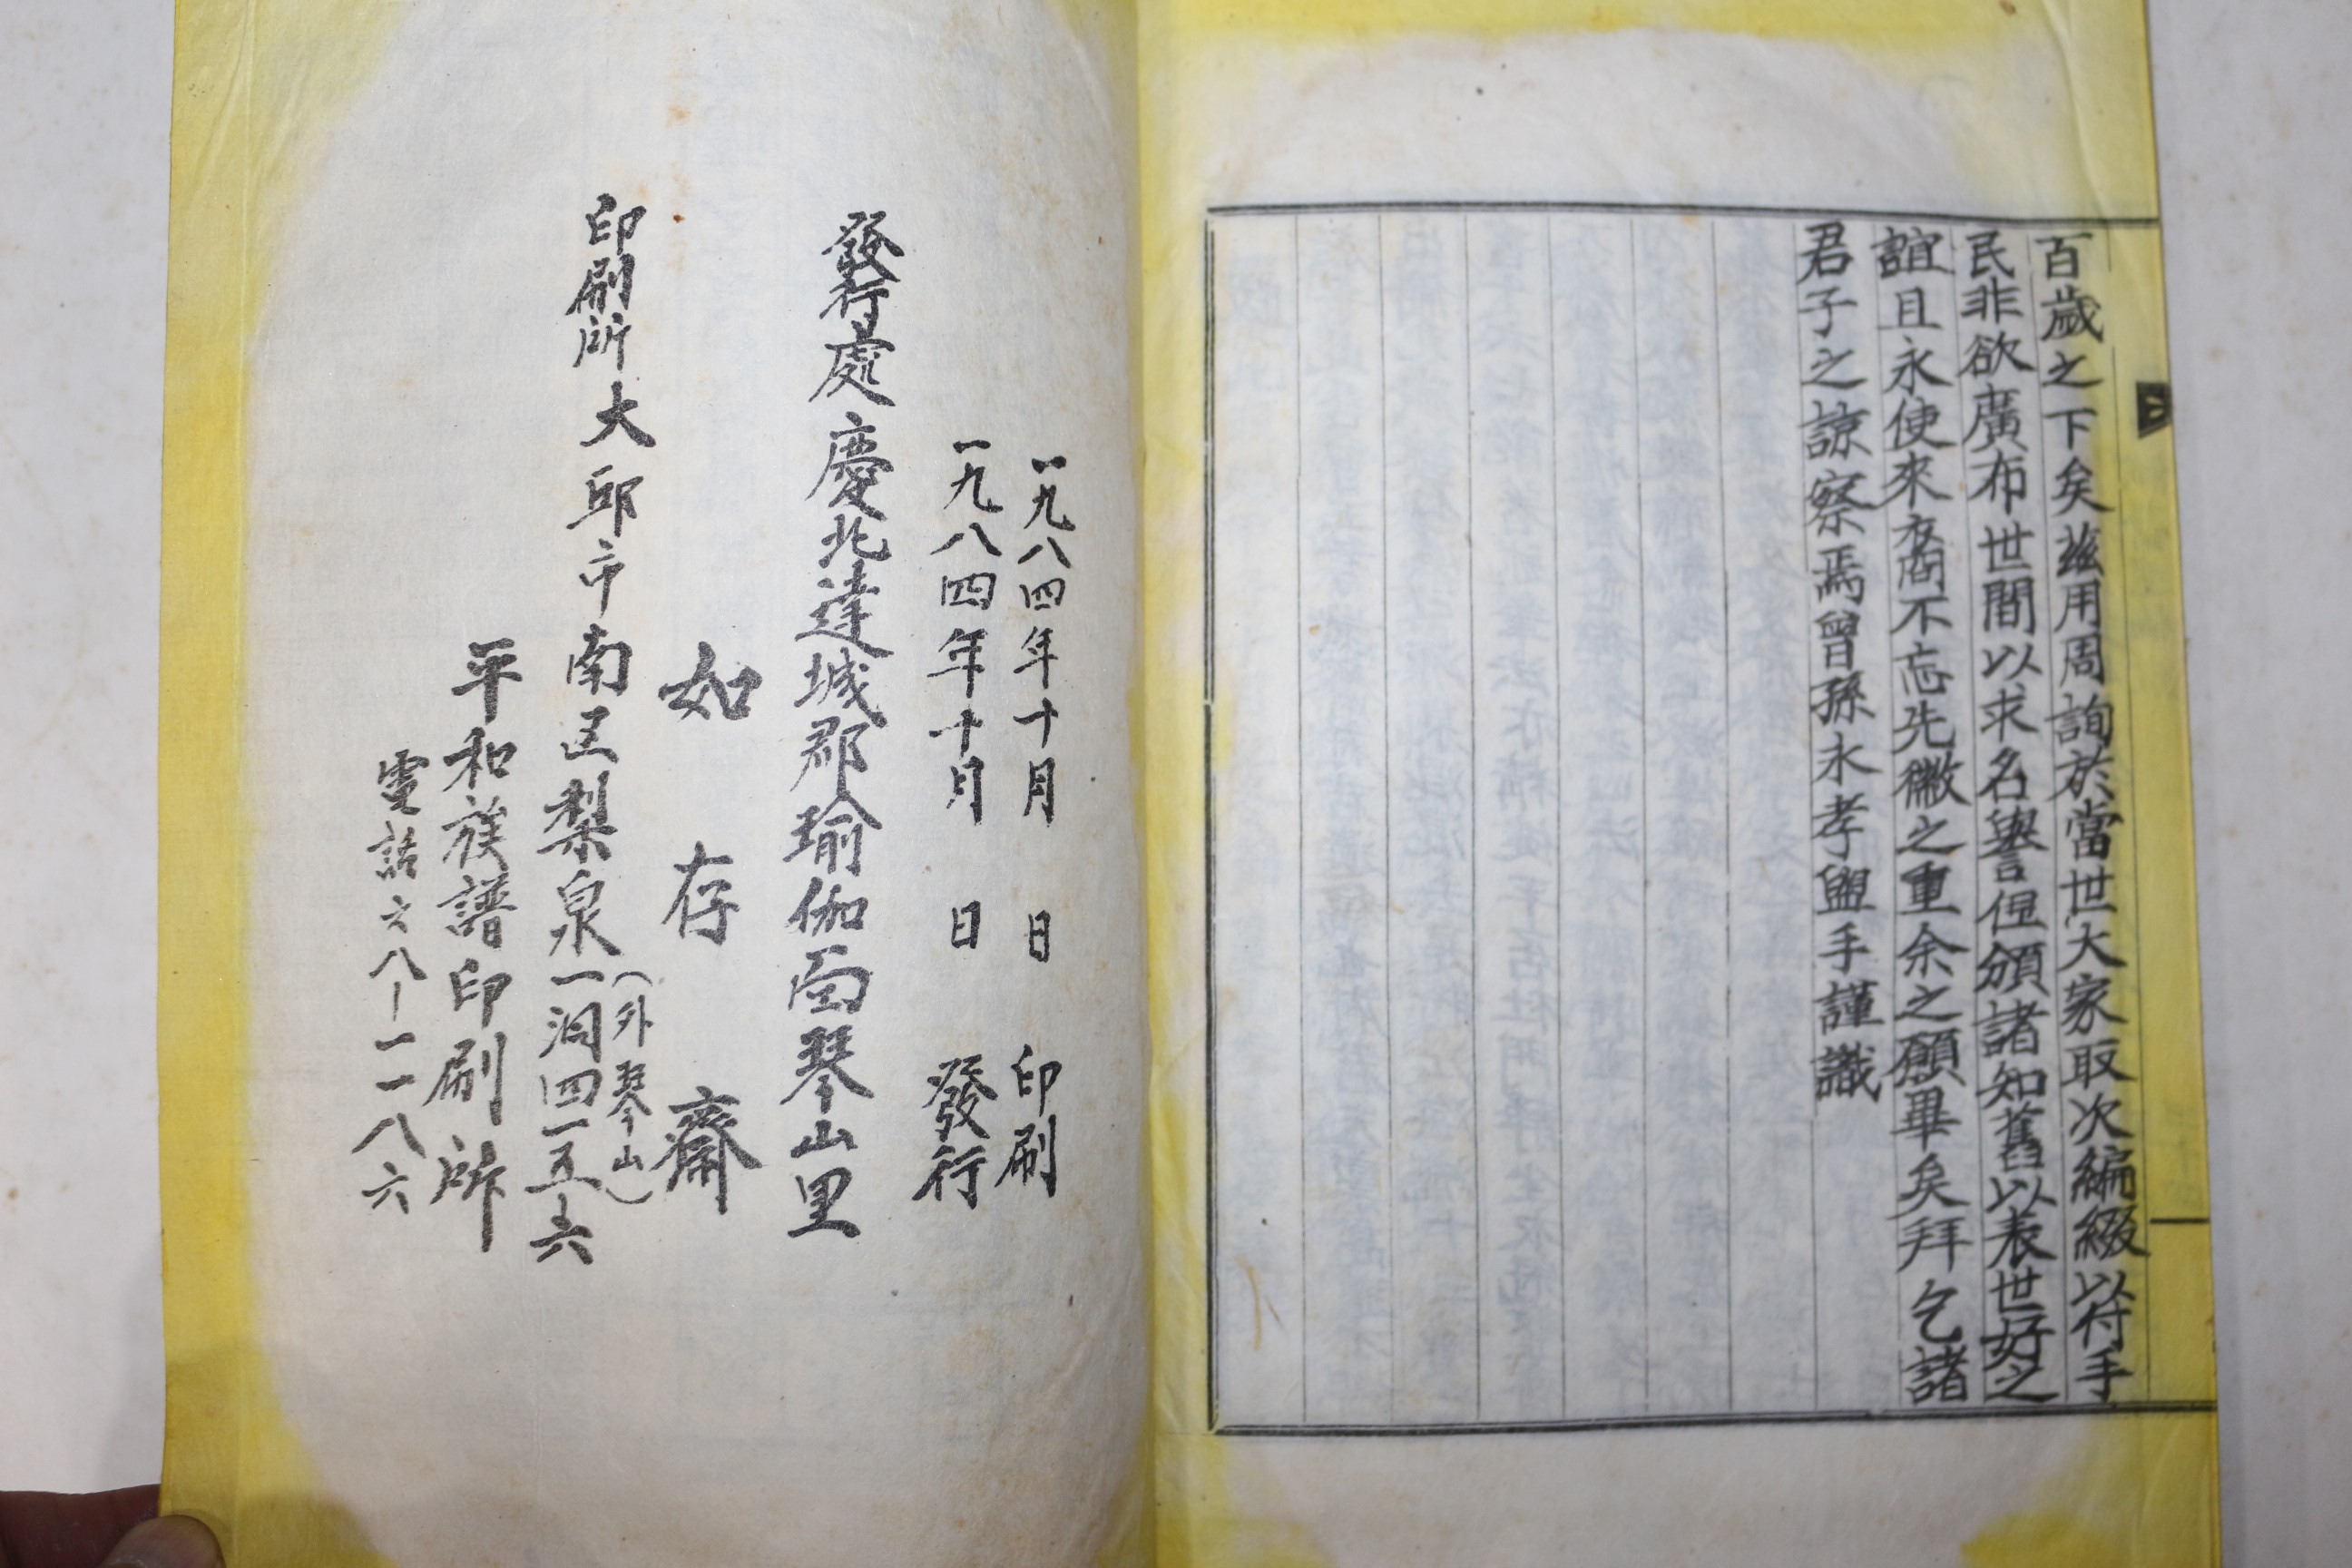 百歲之下矣玆用周詢於當世大家取次編綴以付手
民非欲廣布世間以求名譽但頒諸知舊以表世好之
誼且永使來裔不忘先徽之重余之願畢矣拜乞諸
君子之諒察焉曾孫永孝盥手謹識
一九八四年十月 日 印刷
一九八四年十月 日 發行
發行處 慶北達城郡瑜伽面琴山里
如存齋
印刷所 大邱市南區梨泉一洞四一五ー六
(外琴山)
平和族譜印刷所
電話六八ー一一八六